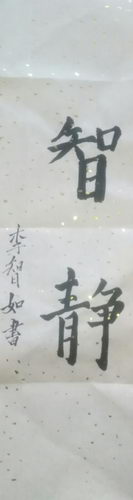 智静
李智如書